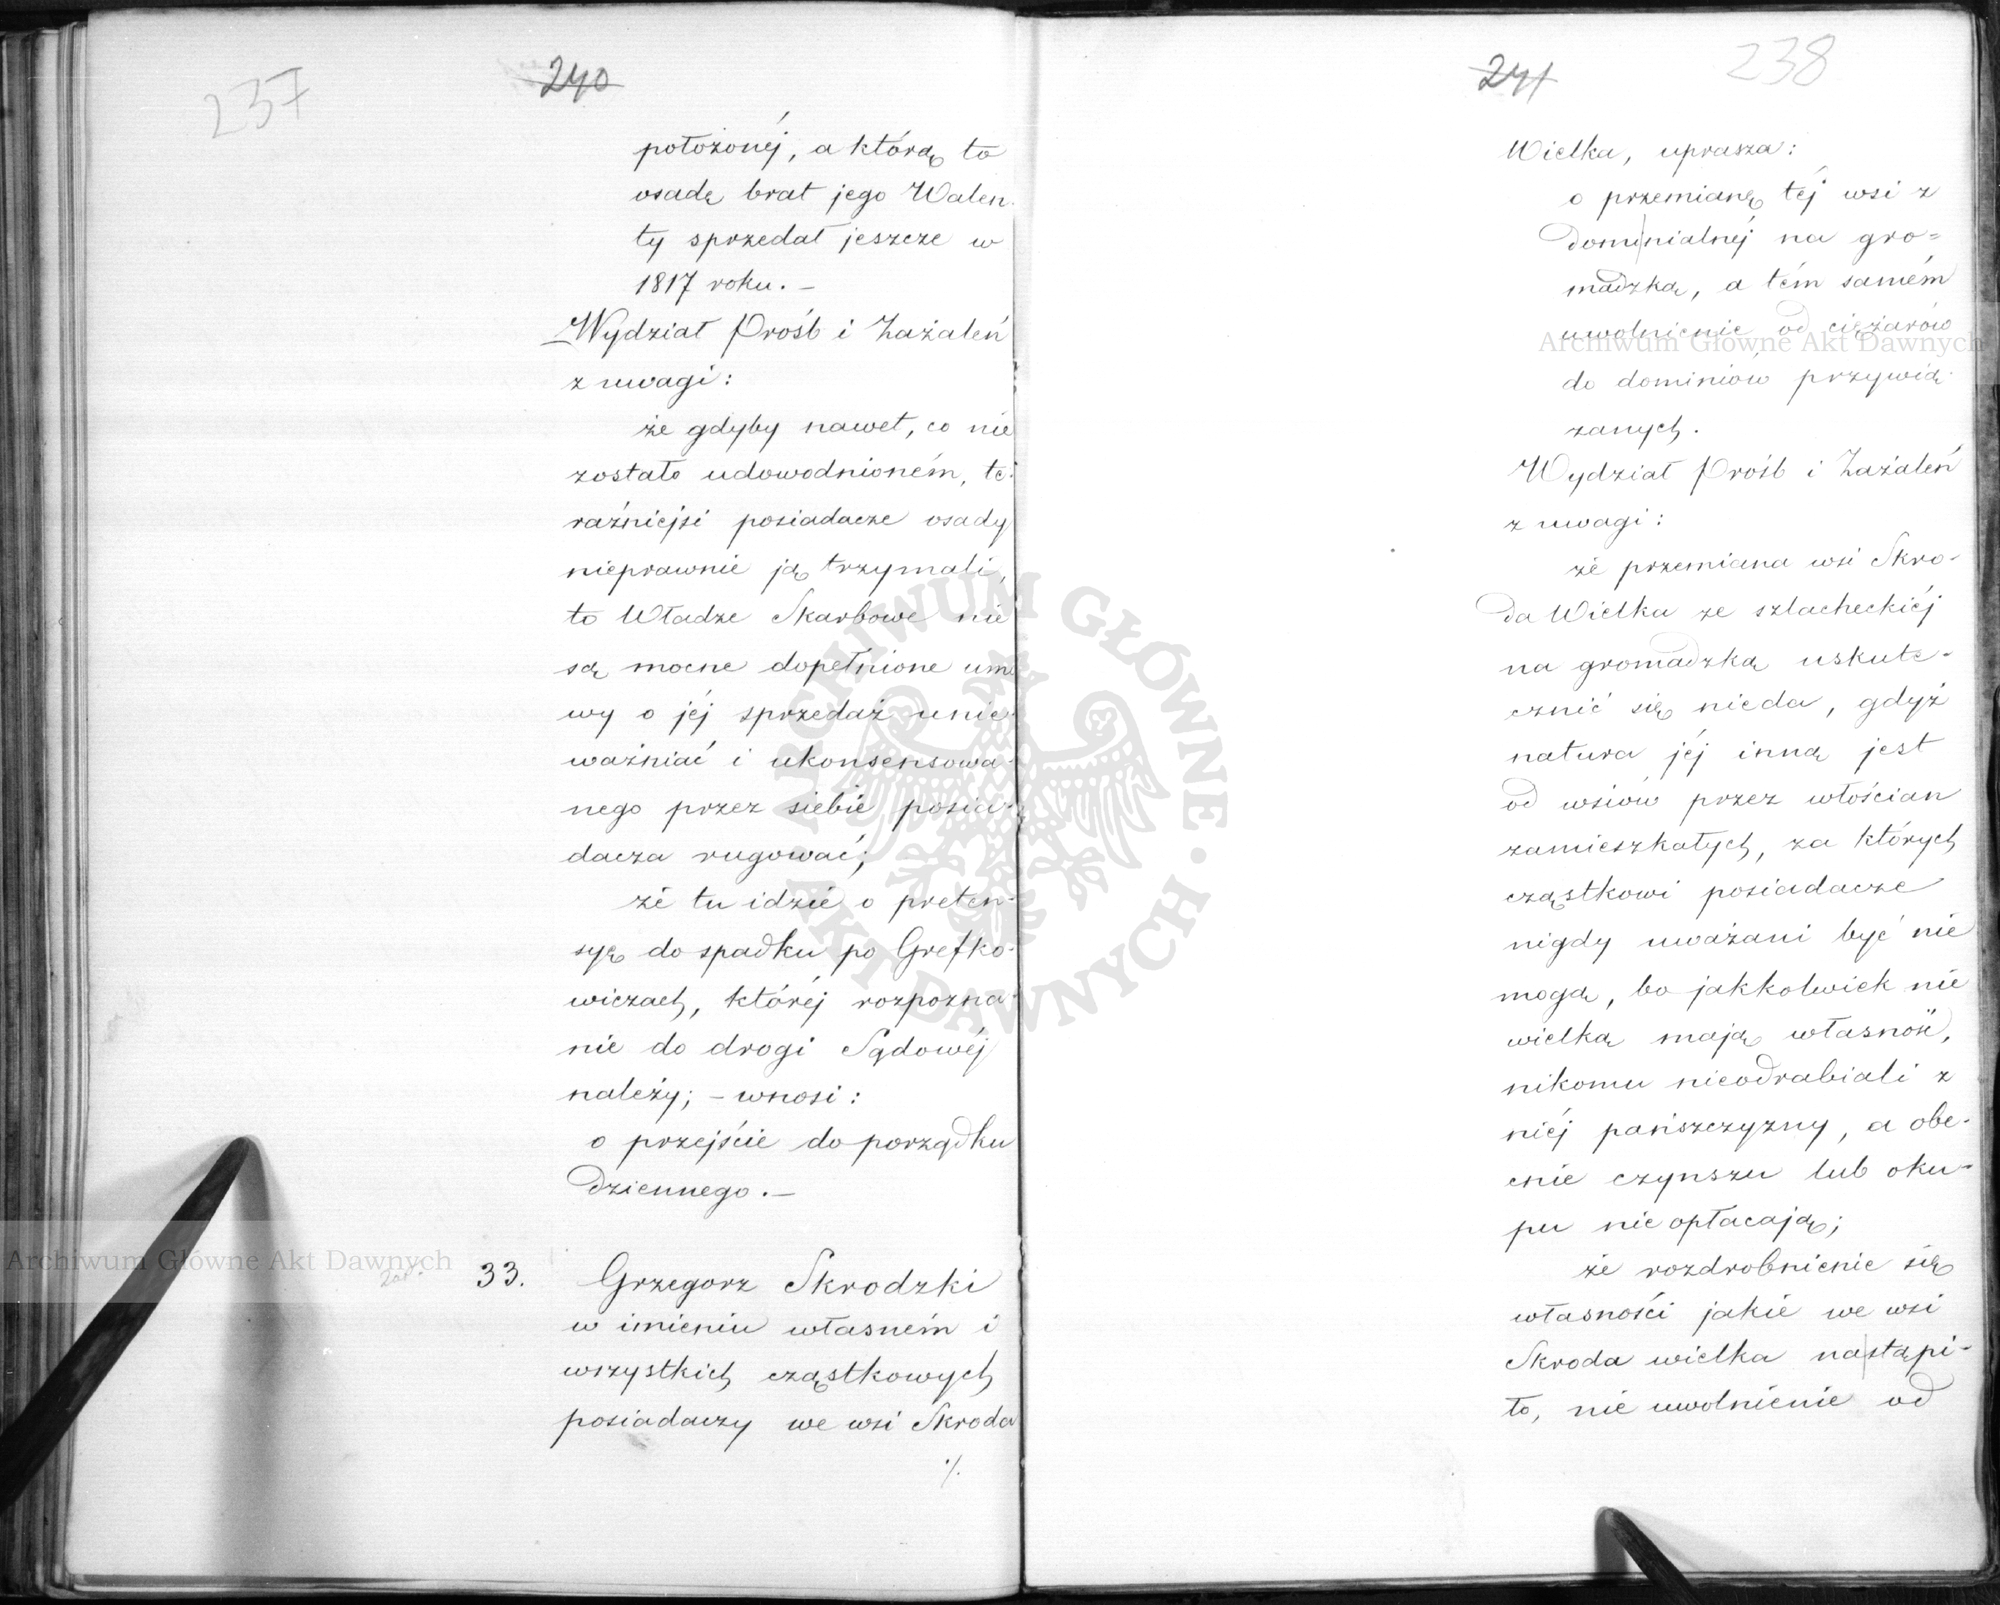 237
240
położonéj, a którą to
osadę brat jego Walen-
ty sprzedał jeszcze w
1817 roku. —
Wydział Próśb i Zażaleń
z uwagi:
że gdyby nawet, co nie
zostało udowodnioném, te-
raźniejsi posiadacze osady
nieprawnie ją trzymali,
to Władze Skarbowe nie
są mocne dopełnione umo
wy o jéj sprzedaż unie-
ważniać i ukonsensowa-
nego przez siebie posia-
dacza rugować;
że tu idzie o preten-
syę do spadku po Grefko-
wiczach, któréj rozpozna-
nie do drogi Sądowéj
należy; – wnosi:
o przejście do porządku
dziennego. —
33. Grzegorz Skrodzki
w imieniu własném i
wszystkich cząstkowych
posiadaczy we wsi Skroda
./.
241
238
Wielka, uprasza:
o przemianę téj wsi z
dominialnéj na gro=
madzką, a tém samém
uwolnienie od ciężarów
do dominiów przywią-
zanych.
Wydział Próśb i Zażaleń
z uwagi:
że przemiana wsi Skro-
da Wielka ze szlacheckiéj
na gromadzką uskute-
cznić się nieda, gdyż
natura jéj inną jest
od wsiów przez włościan
zamieszkałych, za których
cząstkowi posiadacze
nigdy uważani być nie
mogą, bo jakkolwiek nie
wielką mają własność,
nikomu nieodrabiali z
niéj pańszczyzny, a obe-
cnie czynszu lub oku-
pu nie opłacają;
że rozdrobnienie się
własności jakie we wsi
Skroda wielka nastąpi-
ło, nie uwolnienie od
Archiwum Główne Akt Dawnych
Archiwum Główne Akt Dawnych
ARCHIWUM GŁÓWNE · AKT DAWNYCH ·